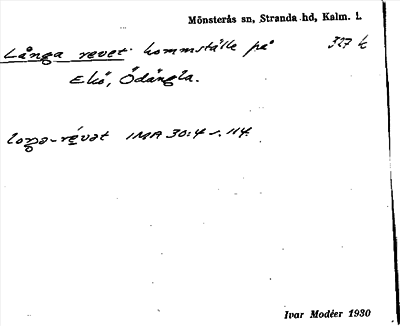 Mönsterås sn, Stranda hd, Kalm. l.
Långa revet kommställe på 327 k
Ekö, Ödängla.
loŋa-révət IMA 30:4 s. 114.
Ivar Modéer 1930